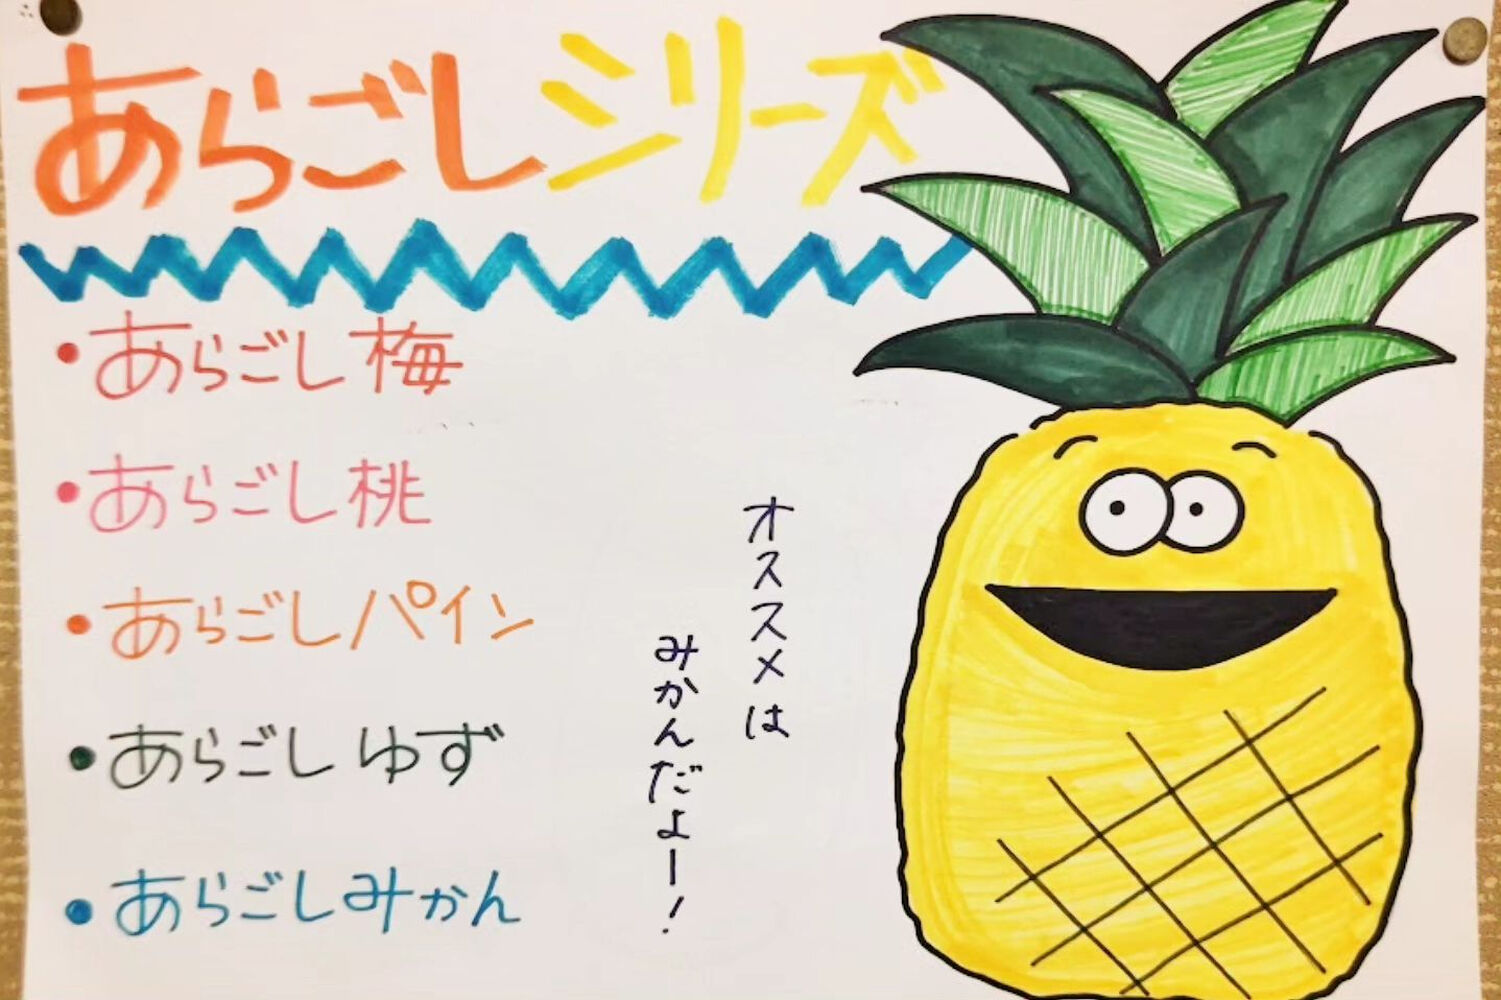 あらごしシリーズ
・あらごし梅
・あらごし桃
・あらごしパイン
・あらごしゆず
・あらごしみかん
オススメは
みかんだよー!